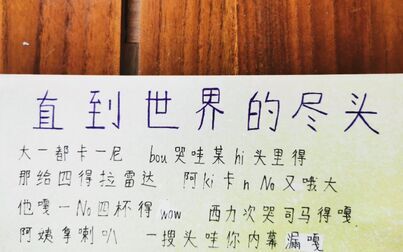 直到世界的尽头
大一都卡一尼 bou哭哇某 hi 头里得
那给四得拉雷达 阿ki卡n No又哦大
他嘎一No四杯得wow 西力次哭司马得嘎
阿姨拿喇叭 一搜头哇你内幕漏嘎